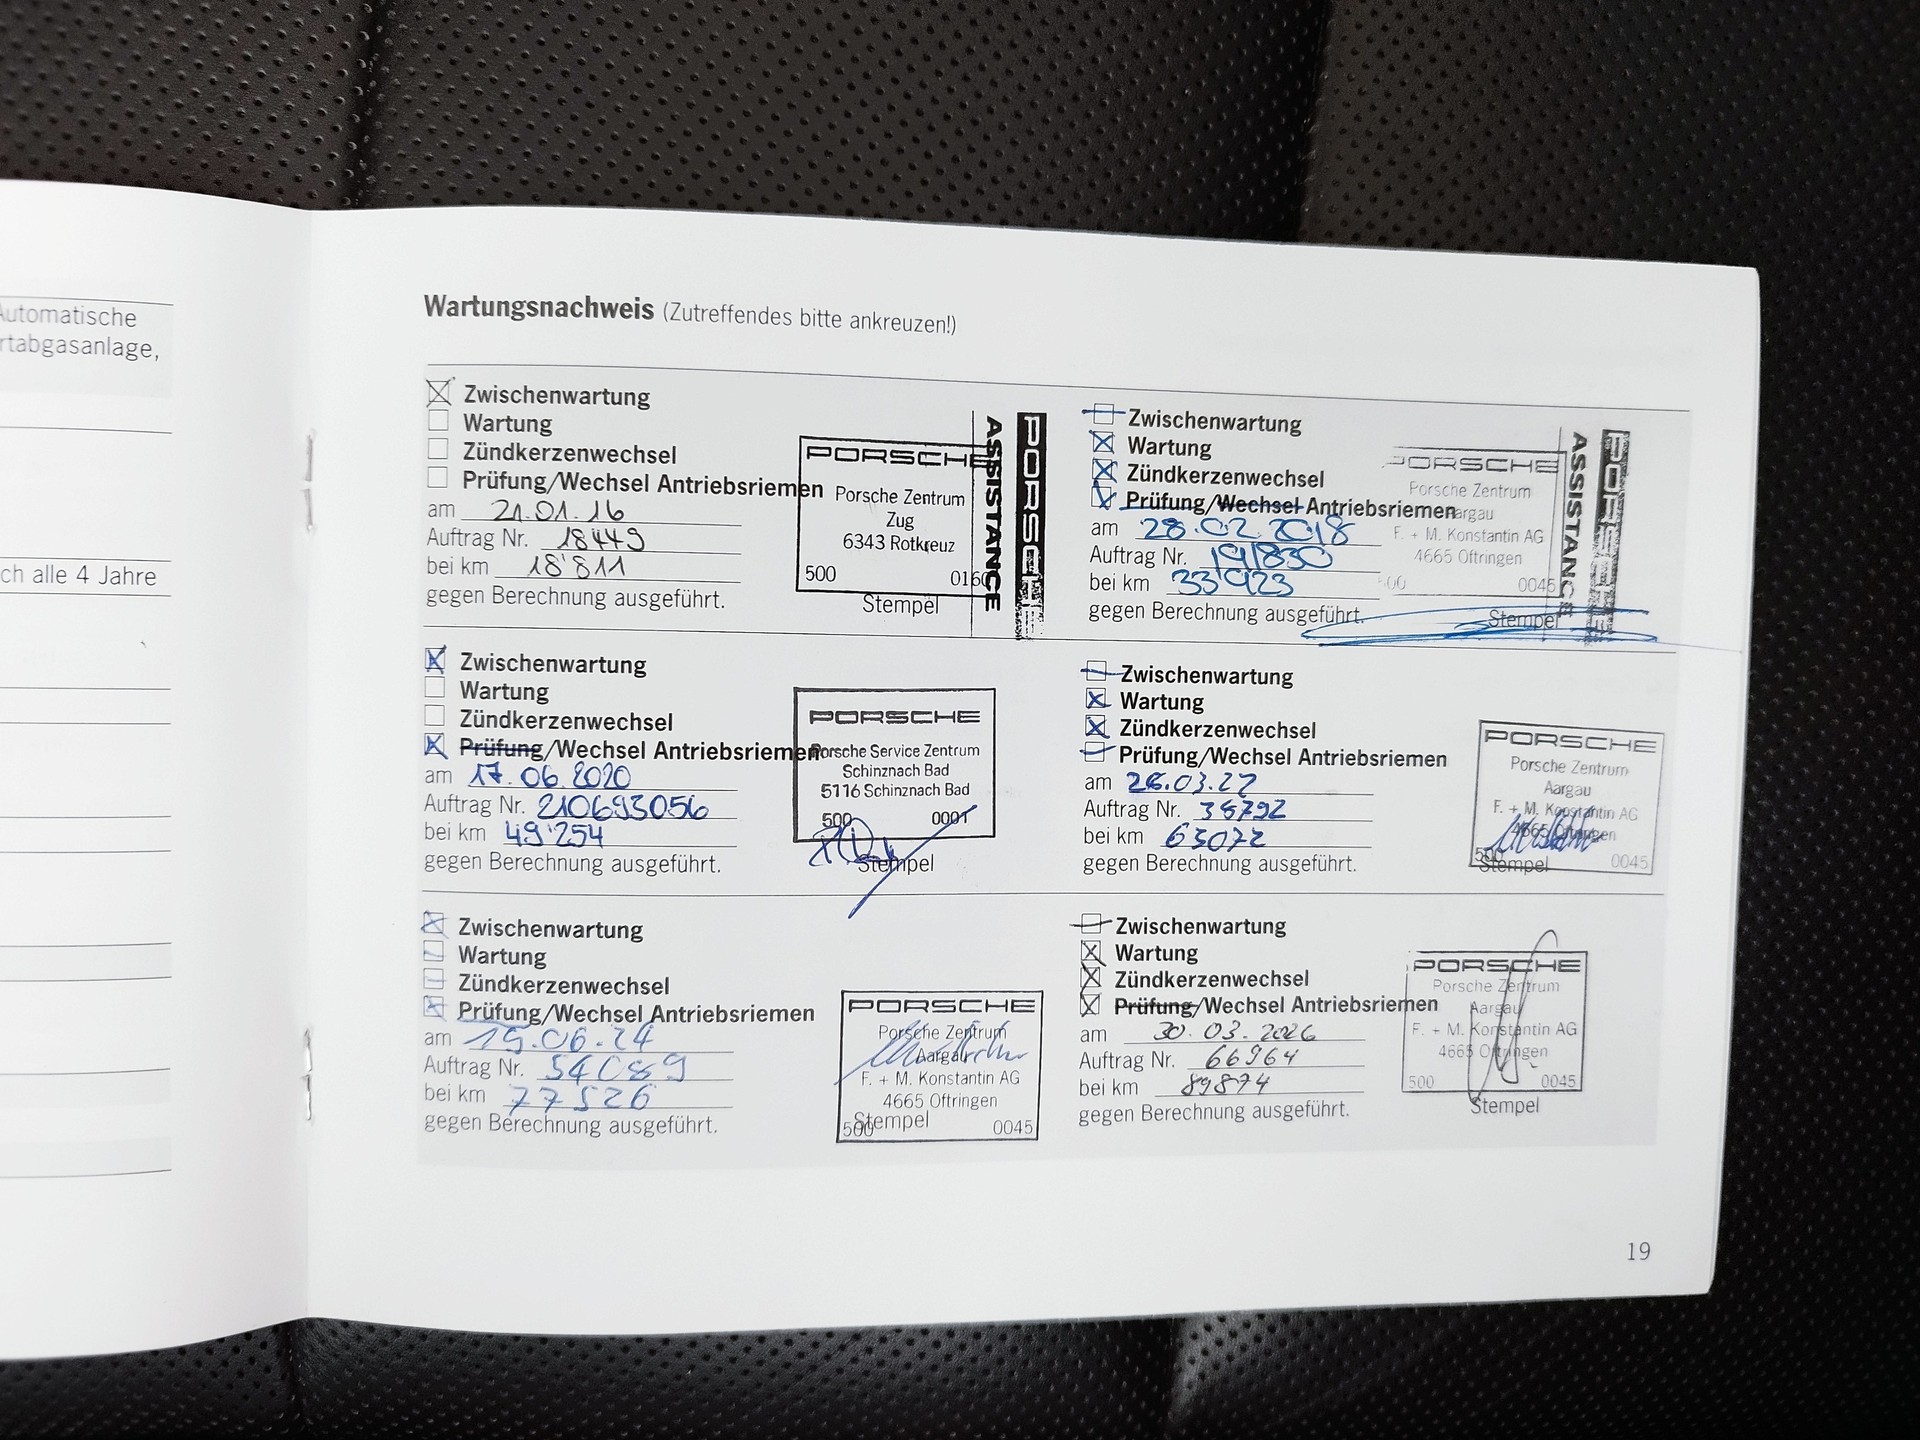 Automatische
rtabgasanlage,
ch alle 4 Jahre
Wartungsnachweis (Zutreffendes bitte ankreuzen!)
Zwischenwartung
Wartung
Zündkerzenwechsel
Prüfung/Wechsel Antriebsriemen
am 21.01.16
Auftrag Nr. 18449
bei km 18'811
gegen Berechnung ausgeführt.
PORSCHE
Porsche Zentrum
Zug
6343 Rotkreuz
500 0160
Stempel
ASSISTANCE
PORSCHE
Zwischenwartung
Wartung
Zündkerzenwechsel
Prüfung/Wechsel Antriebsriemen
am 28.02.2018
Auftrag Nr. 191830
bei km 33'923
gegen Berechnung ausgeführt.
PORSCHE
Porsche Zentrum
Aargau
F. + M. Konstantin AG
4665 Oftringen
500 0045
Stempel
ASSISTANCE
PORSCHE
Zwischenwartung
Wartung
Zündkerzenwechsel
Prüfung/Wechsel Antriebsriemen
am 17.06.2020
Auftrag Nr. 210693056
bei km 49'254
gegen Berechnung ausgeführt.
PORSCHE
Porsche Service Zentrum
Schinznach Bad
5116 Schinznach Bad
500 0001
Stempel
Zwischenwartung
Wartung
Zündkerzenwechsel
Prüfung/Wechsel Antriebsriemen
am 28.03.22
Auftrag Nr. 38792
bei km 63072
gegen Berechnung ausgeführt.
PORSCHE
Porsche Zentrum
Aargau
F. + M. Konstantin AG
4665 Oftringen
500 0045
Stempel
Zwischenwartung
Wartung
Zündkerzenwechsel
Prüfung/Wechsel Antriebsriemen
am 19.06.24
Auftrag Nr. 54089
bei km 77526
gegen Berechnung ausgeführt.
PORSCHE
Porsche Zentrum
Aargau
F. + M. Konstantin AG
4665 Oftringen
500 0045
Stempel
Zwischenwartung
Wartung
Zündkerzenwechsel
Prüfung/Wechsel Antriebsriemen
am 30.03.2026
Auftrag Nr. 66964
bei km 89874
gegen Berechnung ausgeführt.
PORSCHE
Porsche Zentrum
Aargau
F. + M. Konstantin AG
4665 Oftringen
500 0045
Stempel
19